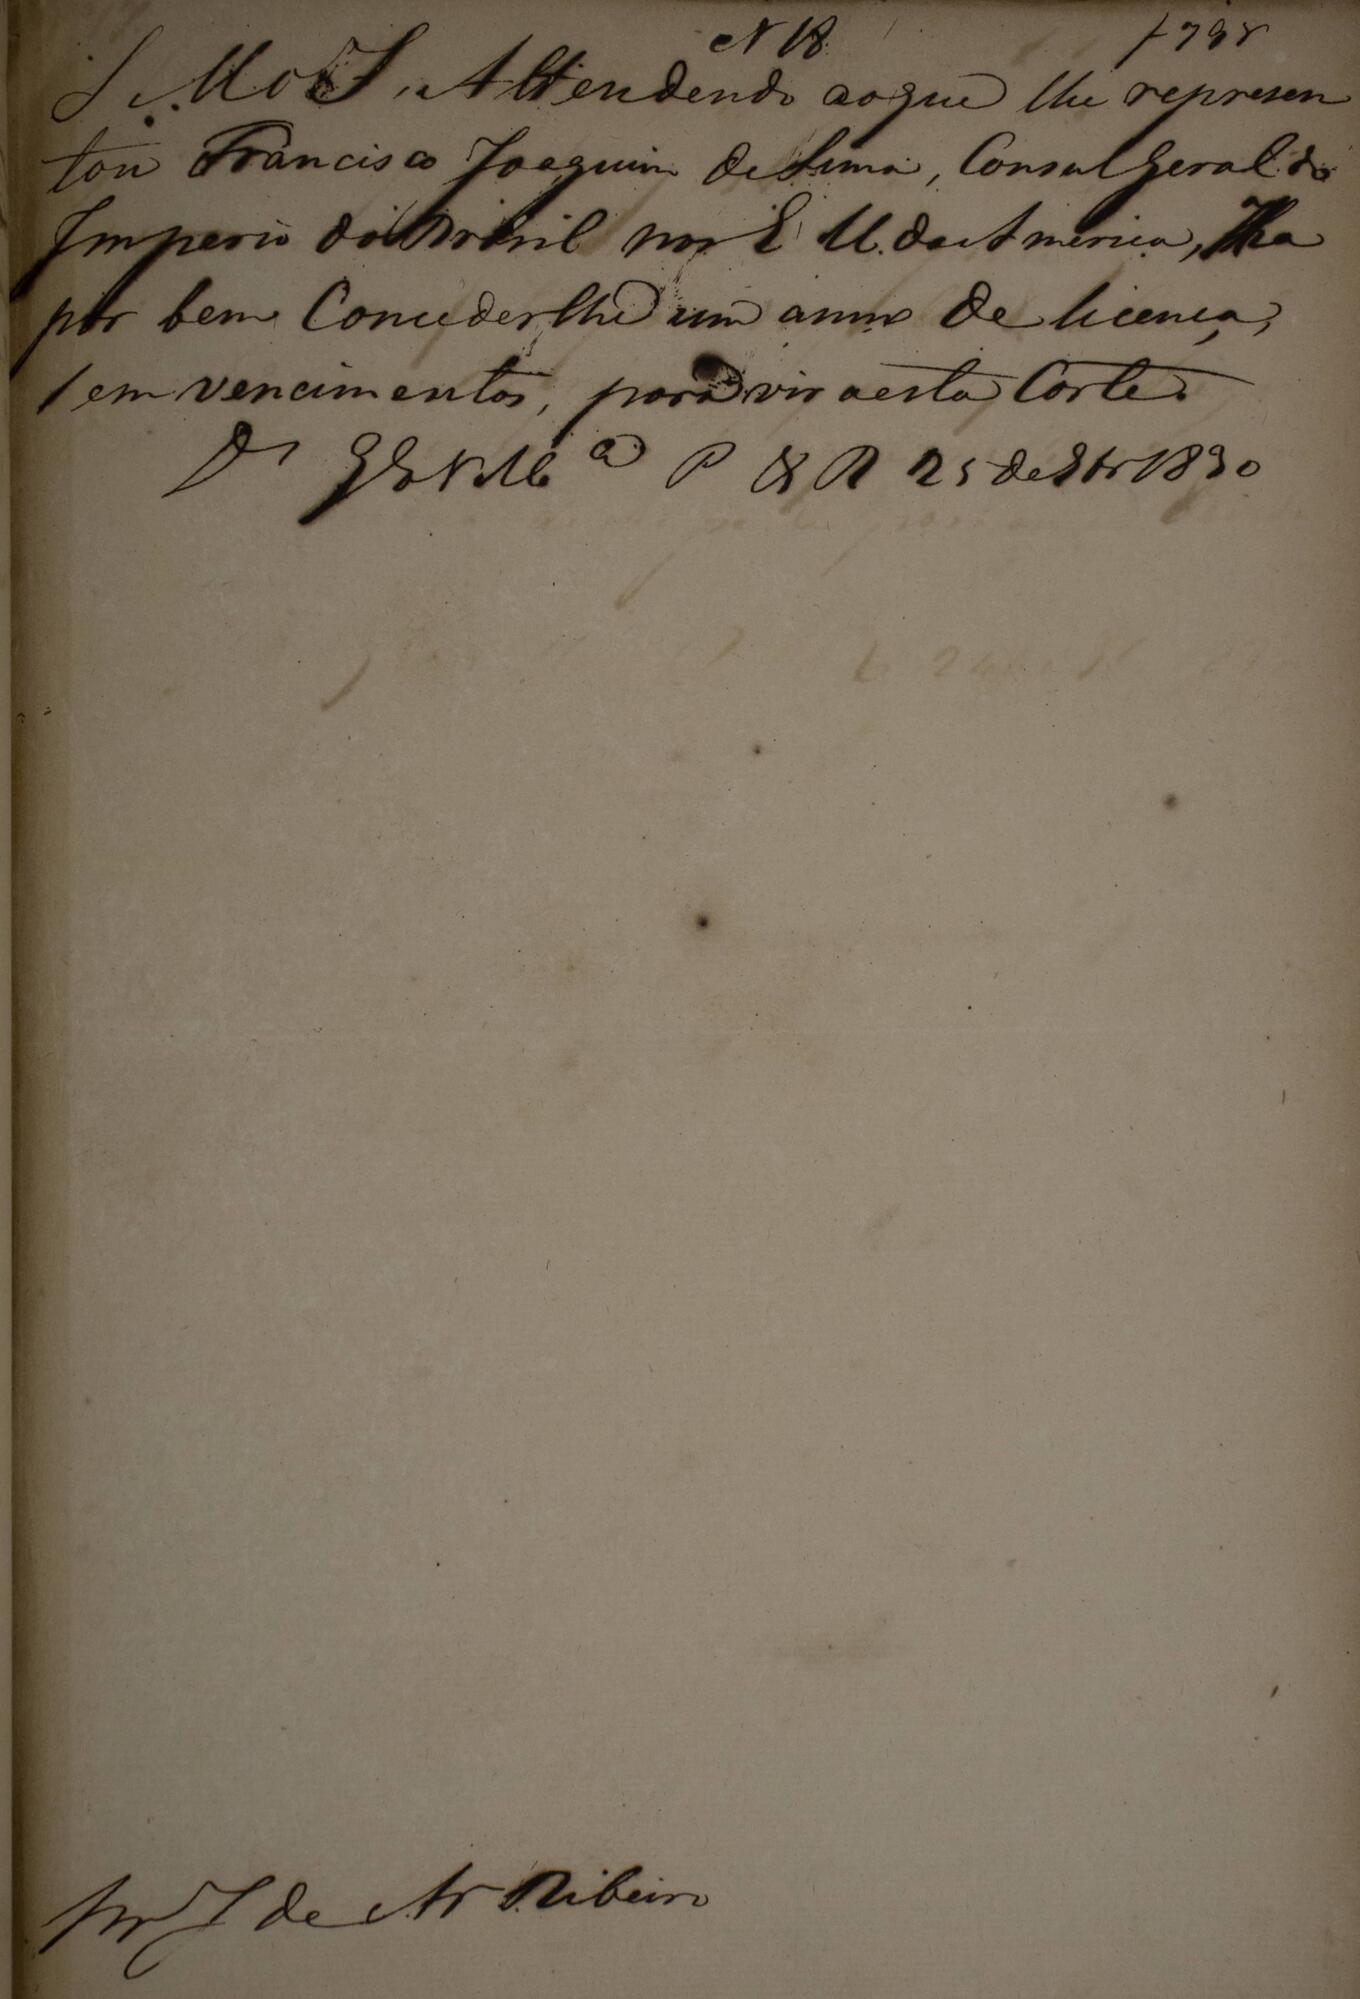 N 18
S. M. o I. Attendendo ao que lhe represen
tou Francisco Joaquim de Lima, Consul Geral do
Imperio do Brasil nos E. U. da America, Ha
por bem Concederlhe um anno de licença,
sem vencimentos, para vir a esta Corte.
Ds Ge a V. Mce P 25 de 1830
pr J de Ar Ribeiro